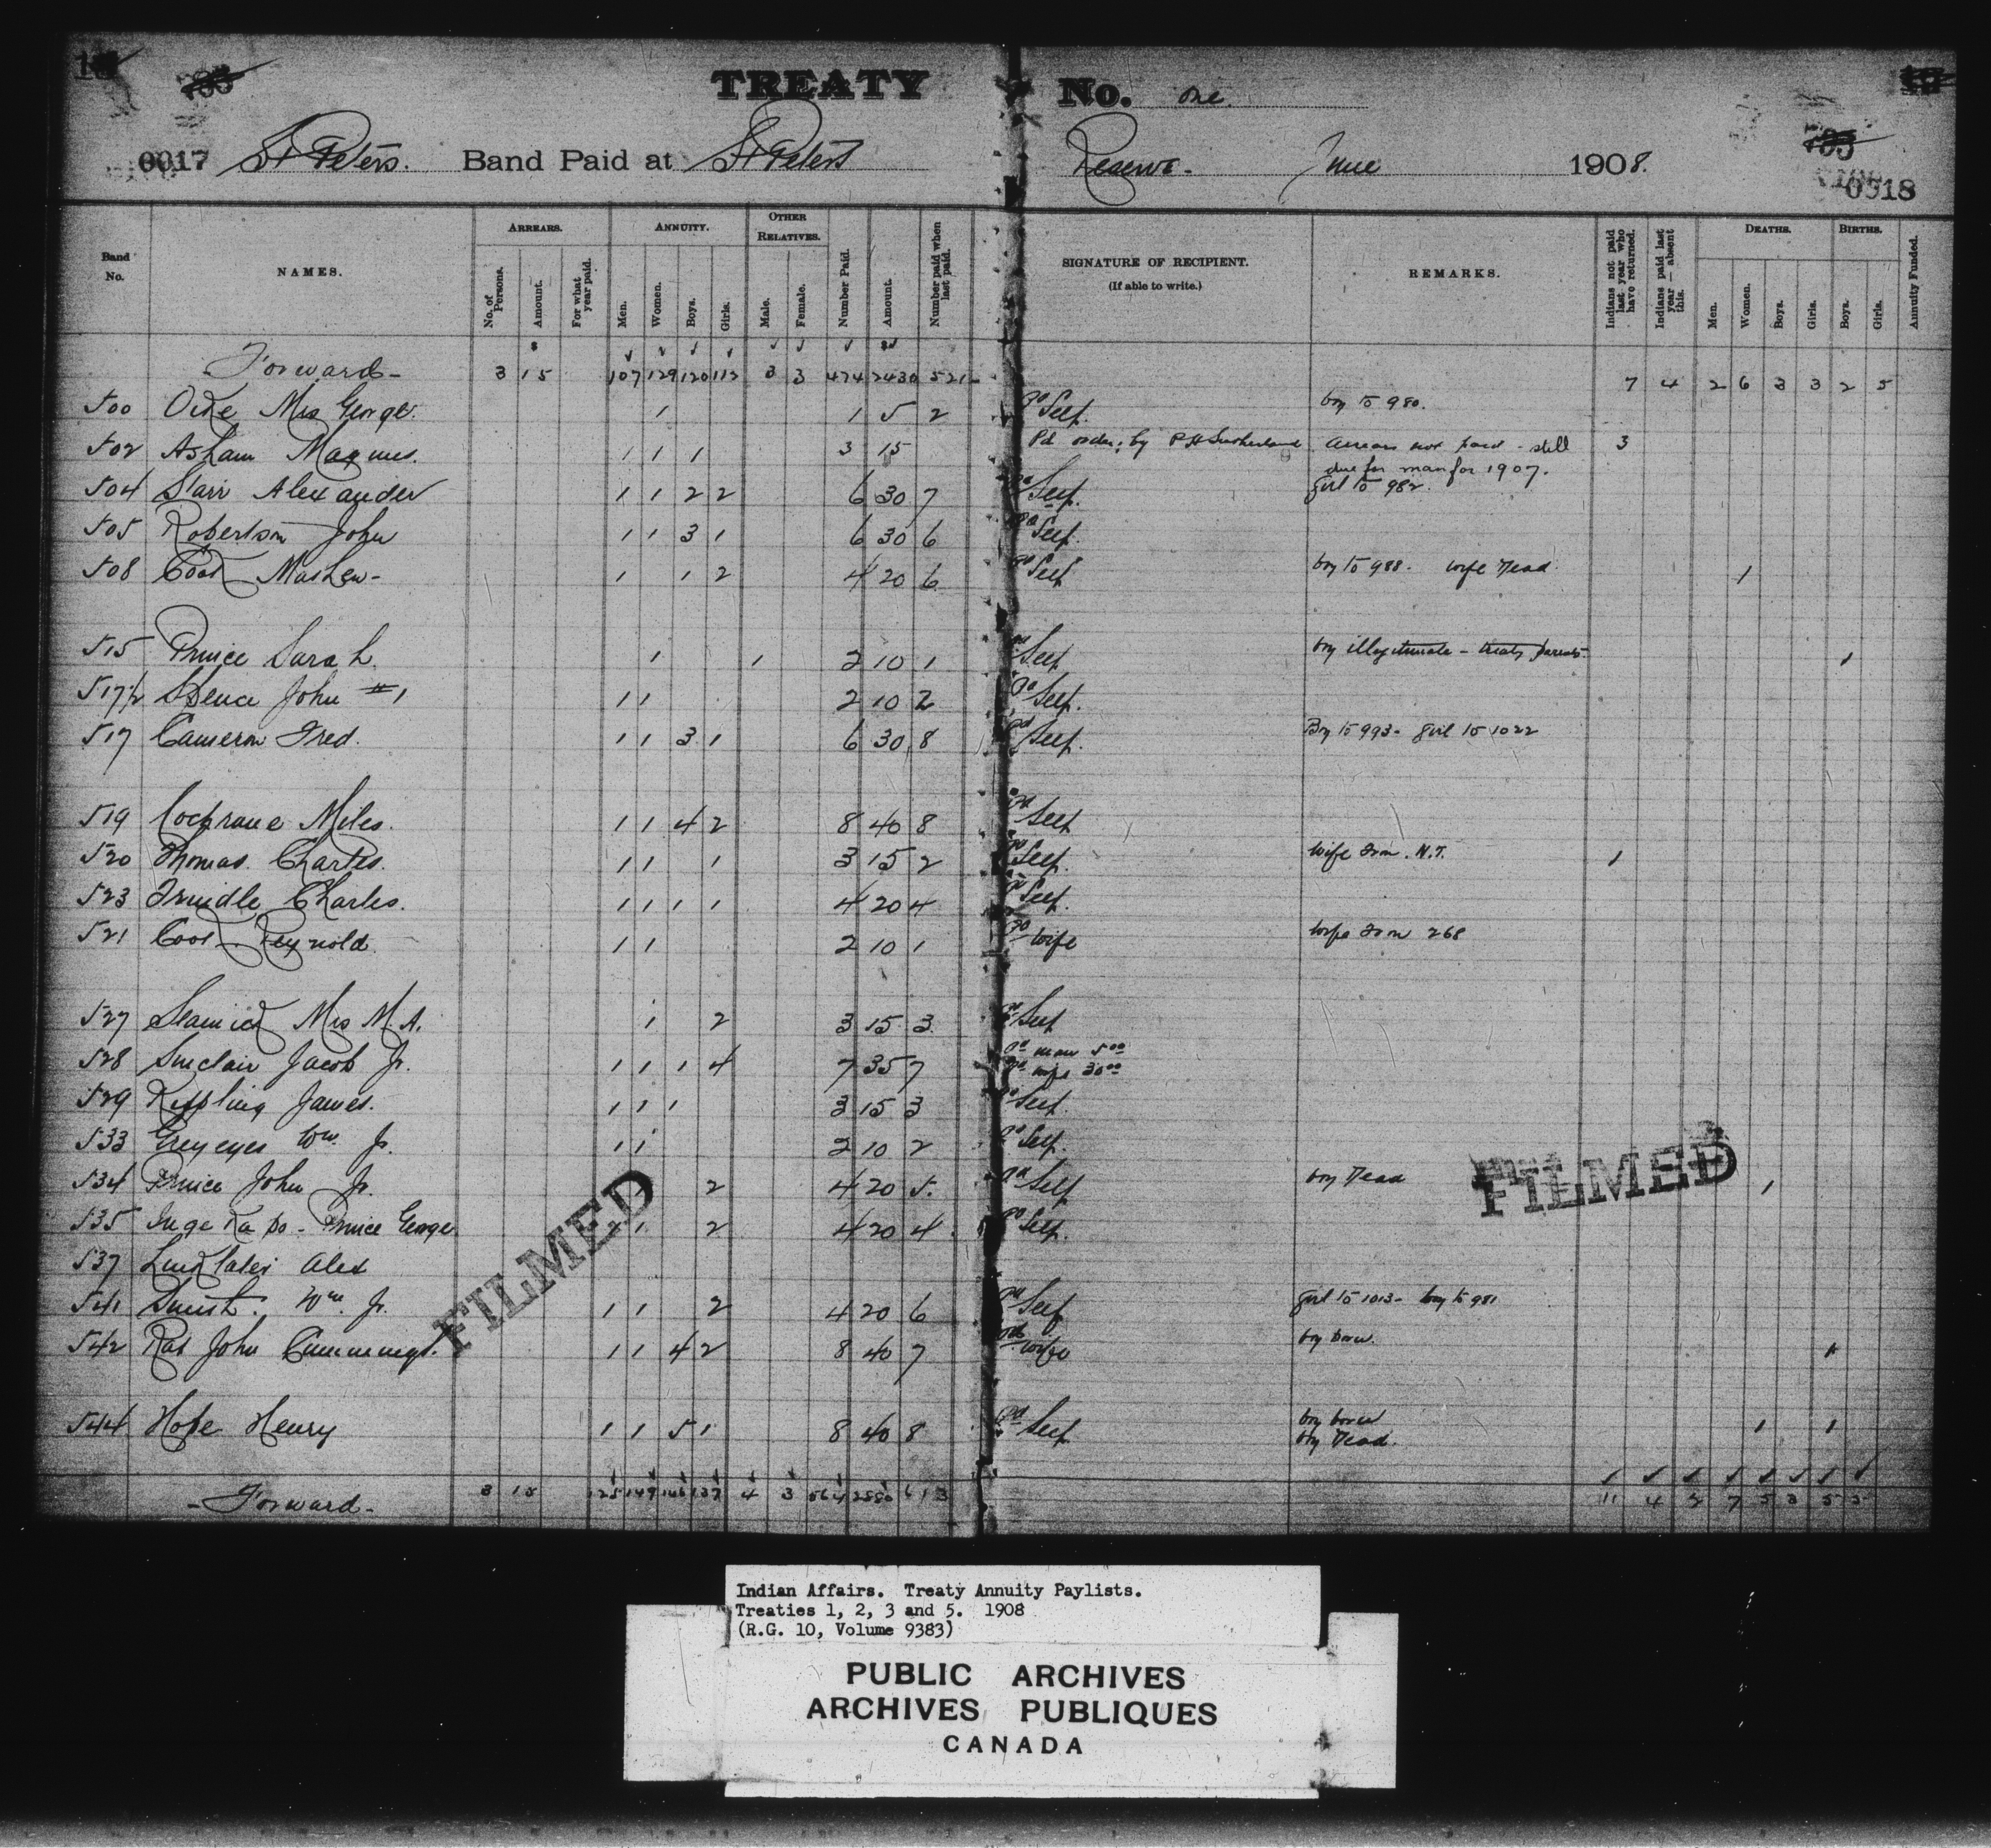 TREATY No. one.
0017 St Peters. Band Paid at St Peters Reserve. June 1908.
0018
Band No. NAMES. ARREARS. No. of Persons. Amount. For what year paid. ANNUITY. Men. Women. Boys. Girls. OTHER RELATIVES. Male. Female. Number Paid. Amount. Number paid when last paid. SIGNATURE OF RECIPIENT. (If able to write.) REMARKS. Indians not paid last year who have returned. Indians paid last year — absent this. DEATHS. Men. Women. Boys. Girls. BIRTHS. Boys. Girls. Annuity Funded.
Forward- 3 15 107 129 120 112 3 3 474 2430 521 7 4 2 6 3 3 2 5
500 Mrs George. 1 1 5 2 Pd Self. boy to 980.
502 Asham Magnus. 1 1 1 3 15 Pd order; by P H Sutherland Arrears not paid - still 3
due for man for 1907.
504 Starr Alexander 1 1 2 2 6 30 7 Pd Self. girl to 982.
505 Robertson John 1 1 3 1 6 30 6 Pd Self.
508 Cook Mathew- 1 1 2 4 20 6 Pd Self boy to 988. wife Dead 1
515 Prince Sarah. 1 1 2 10 1 Pd Self boy illegitimate - treaty parents. 1
517½ Spence John #1 1 1 2 10 2 Pd Self.
517 Cameron Fred. 1 1 3 1 6 30 8 Pd Self. Boy to 993- girl to 1022
519 Cochrane Miles. 1 1 4 2 8 40 8 Pd Self
520 Thomas Charles. 1 1 1 3 15 2 Pd Self. wife from N.T. 1
523 Trindle Charles. 1 1 1 1 4 20 4 Pd Self.
521 Cook Reynold. 1 1 2 10 1 Pd wife wife from 268
527 Mrs M. A. 1 2 3 15 3 Pd Self
528 Sinclair Jacob Jr. 1 1 1 4 7 35 7 Pd man 5.00
Pd wife 30.00
529 Kippling James. 1 1 1 3 15 3 Pd Self.
533 Greyeyes Wm Jr. 1 1 2 10 2 Pd Self.
534 Prince John Jr. 1 2 4 20 5. Pd Self boy Dead 1
535 Prince George 1 1 2 4 20 4. Pd Self.
537 Linklater Alex
541 Smith. Wm. Jr. 1 1 2 4 20 6 Pd Self girl to 1013- boy to 981
542 Rat John Cummings. 1 1 4 2 8 40 7 Pd wife boy born. 1
544 Hope Henry 1 1 5 1 8 40 8 Pd Self boy born 1 1
boy Dead.
-Forward- 3 15 125 149 137 4 3 564 613 11 4 2 7 5 3 5 5
FILMED
FILMED
Indian Affairs. Treaty Annuity Paylists.
Treaties 1, 2, 3 and 5. 1908
(R.G. 10, Volume 9383)
PUBLIC ARCHIVES
ARCHIVES PUBLIQUES
CANADA